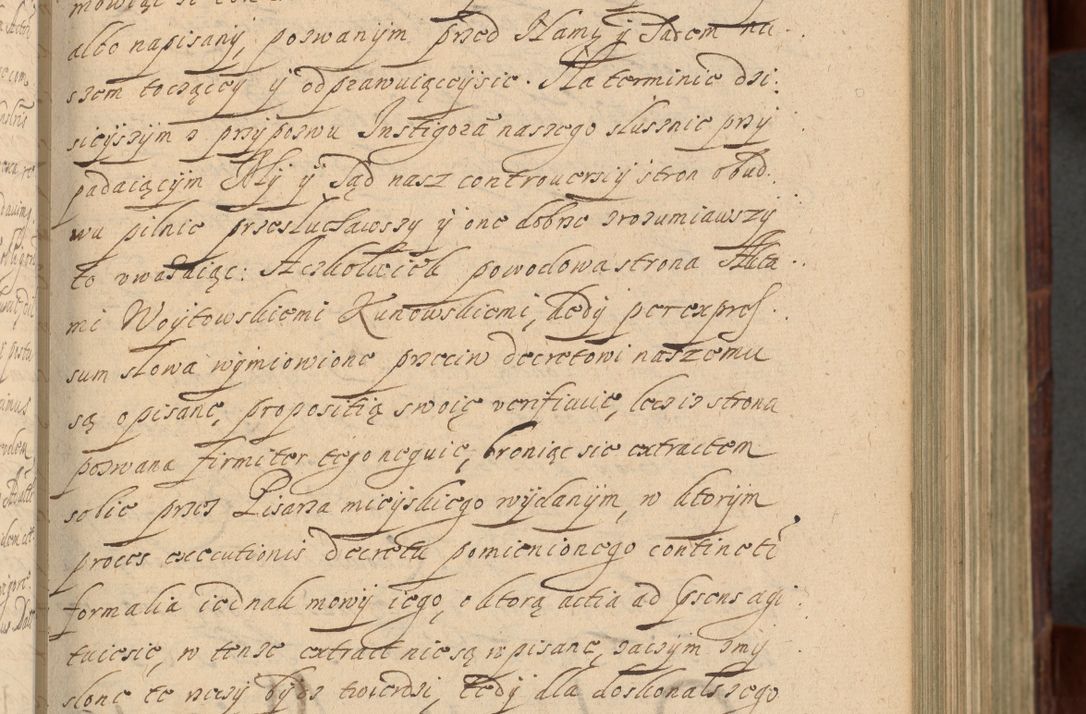 albo napisany, pozwanym przed Nami y Sądem na
szem toczącey y odprawuiąceysie. Na terminie dzi:
sieyszym z przypozwu Instigora naszego slusznie przy
padaiącym My y Sąd nasz controversiy stron obud:
wu pilnie przesluchawszy y one dobrze zrozumiawszy
to uwazaiąc: Aczkolwiek powodowa strona Akta
mi Woytowskiemi Kunowskiemi, kedy per expres
sum slowa wymiowione przeciw decretowi naszemu
są opisane, propositią swoię verifiauie, lecz iz strona
pozwana firmiter tego neguie, broniąc sie extractem
solie przez Pisarza mieyskiego wydanym, w ktorym
proces executionis decretu pomienionego contineti
formalia iednak mowy iego, o ktorą actia ad psens agi
tuiesie, w tenze extract nie są wpisane, zaczym zmy
slone te rzeczy bydz twierdzi, tedy dla doskonalszego